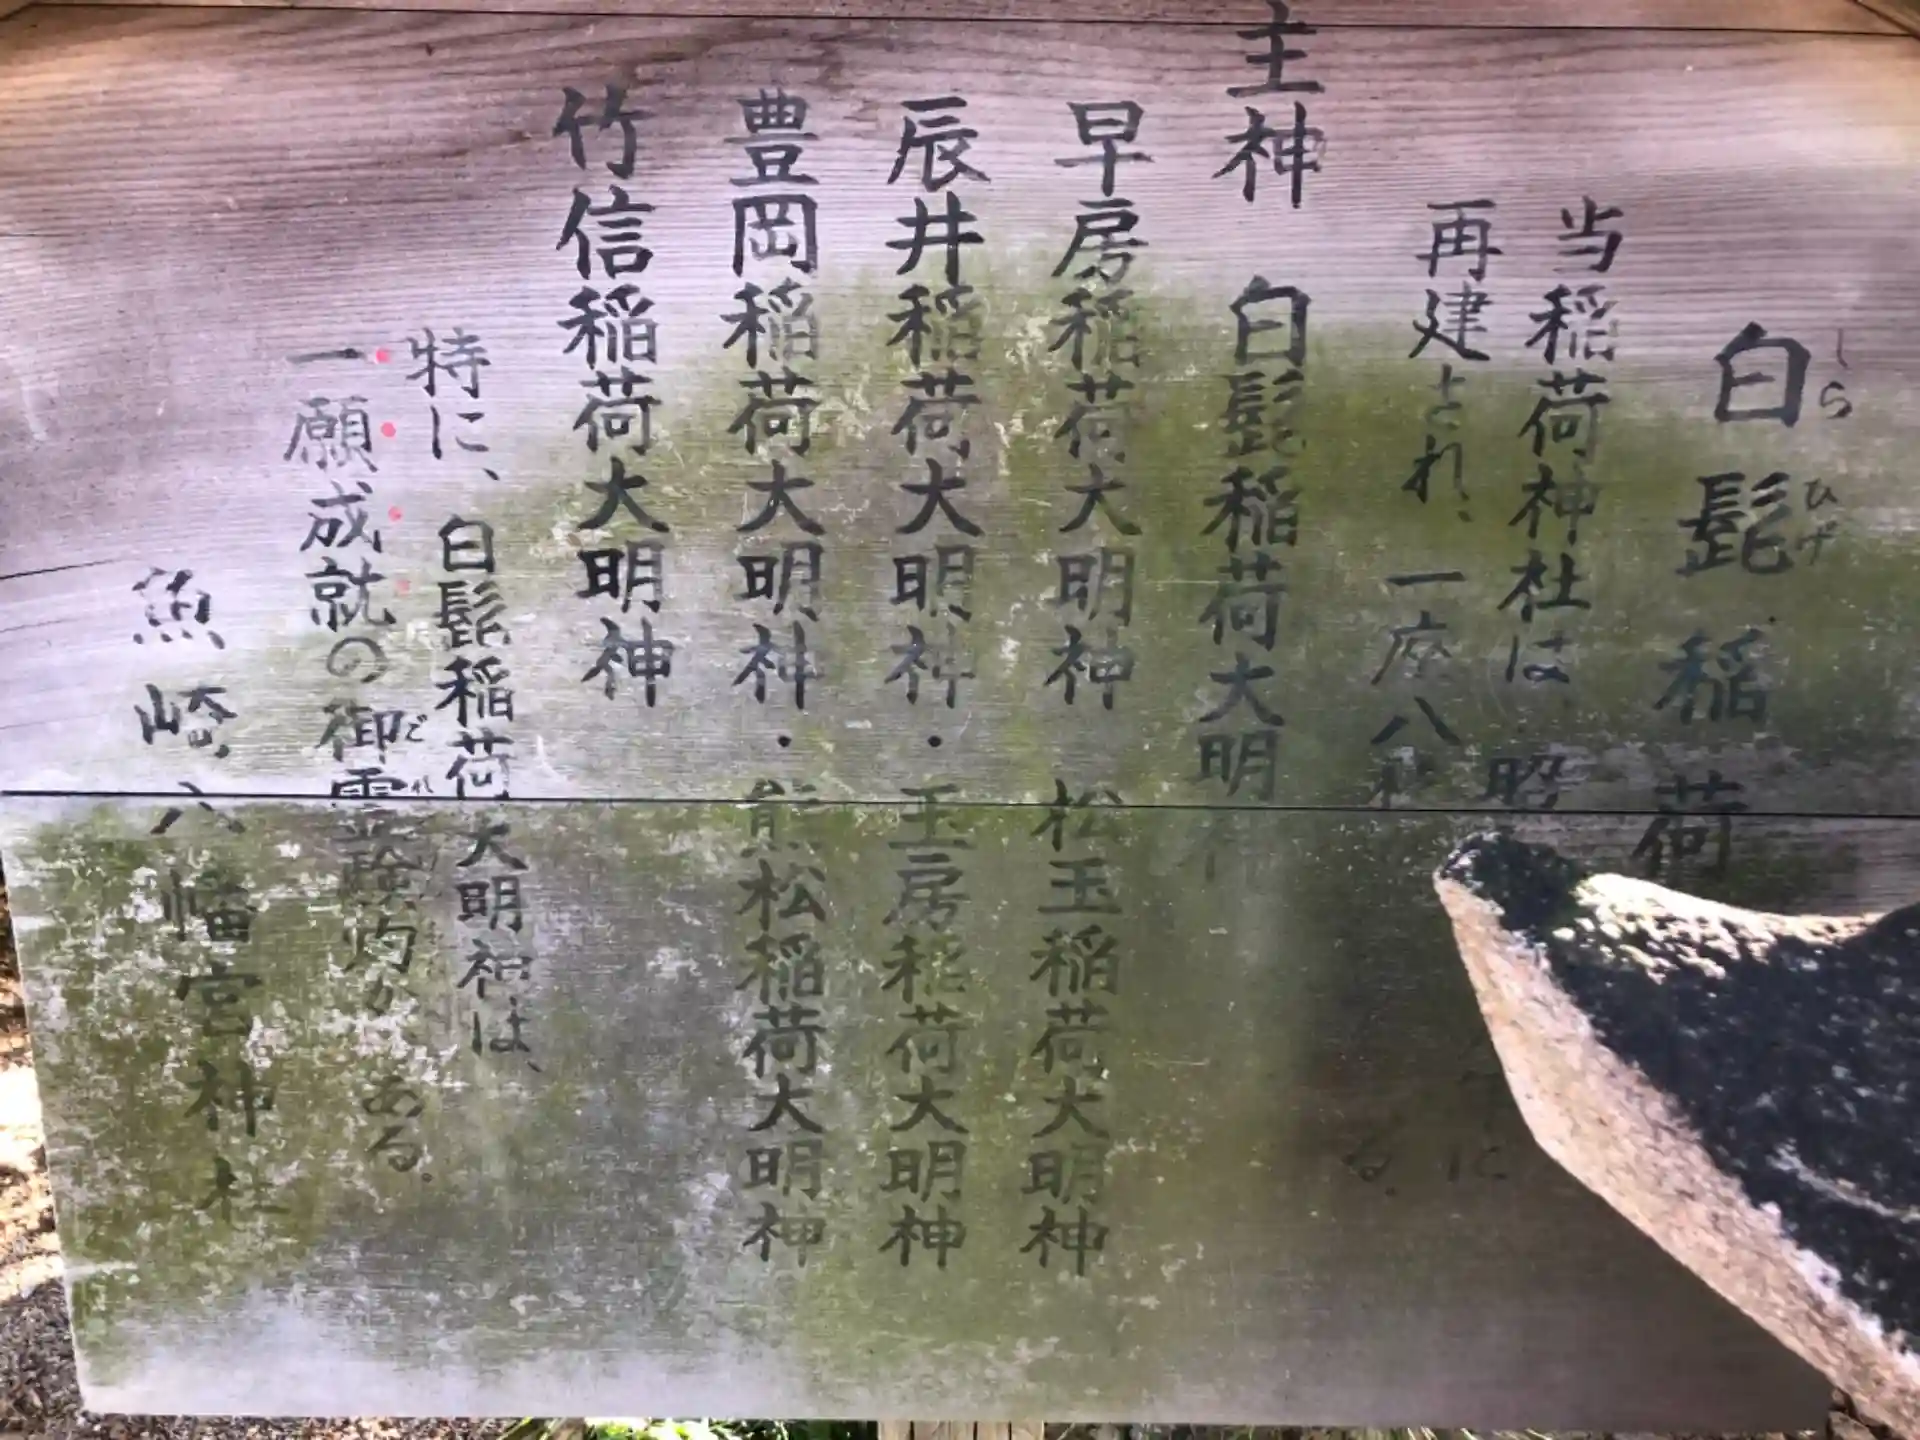 白髭稲荷
しらひげ
当稲荷神社は、昭
年に
再建され、一座八
る。
主神 白髭稲荷大明神
早房稲荷大明神・松玉稲荷大明神
辰井稲荷大明神・玉房稲荷大明神
豊岡稲荷大明神・熊松稲荷大明神
竹信稲荷大明神
特に、白髭稲荷大明神は、
一願成就の御霊験灼かである。
魚崎八幡宮神社